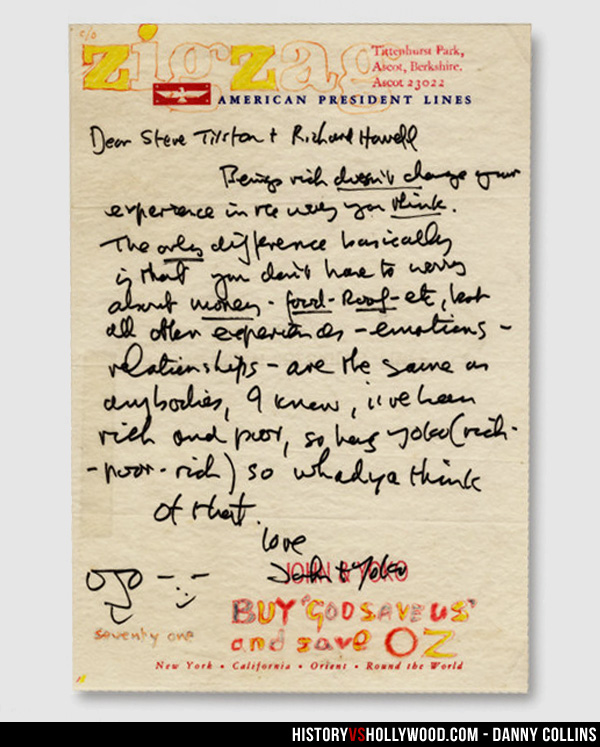 c/o
zigzag
Tittenhurst Park,
Ascot, Berkshire.
Ascot 23022
AMERICAN PRESIDENT LINES
Dear Steve Tilston + Richard Howell
Being rich doesn't change your
experience in the way you think.
The only difference basically
is that you don't have to worry
about money - food - Roof - etc, but
all other experiences - emotions -
relationships - are the same as
anybodies, I know, i've been
rich and poor, so has yoko (rich -
- poor - rich) so whadya think
of that.
love
JOHN & YOKO
John + Yoko
seventy one
BUY "GOD SAVE US"
and save OZ
New York • California • Orient • Round the World
HISTORYVSHOLLYWOOD.COM - DANNY COLLINS